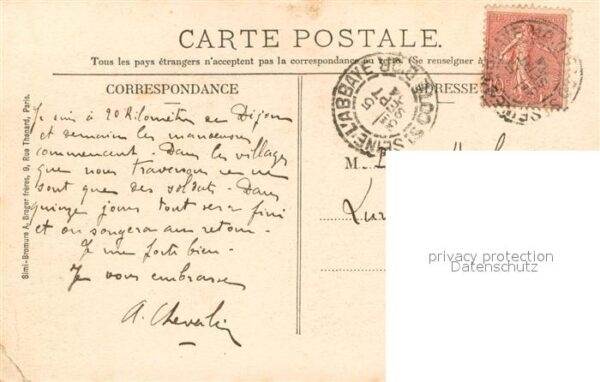 CARTE POSTALE.
Tous les pays étrangers n'acceptent pas la correspondance au verso. (Se renseigner à
CORRESPONDANCE
ADRESSE
Je suis à 20 kilomètres de Dijon
et demain les manœuvres
commencent. Dans les villages
que nous traversons ce ne
sont que des soldats. Dans
quinze jours tout sera fini
et on songera au retour.
Je me porte bien.
Je vous embrasse
A. Chevalier
M.
Simi-Bromure A. Breger frères, 9, Rue Thenard, Paris.
ST SEINE-L'ABBAYE
CÔTE D'OR
privacy protection
Datenschutz